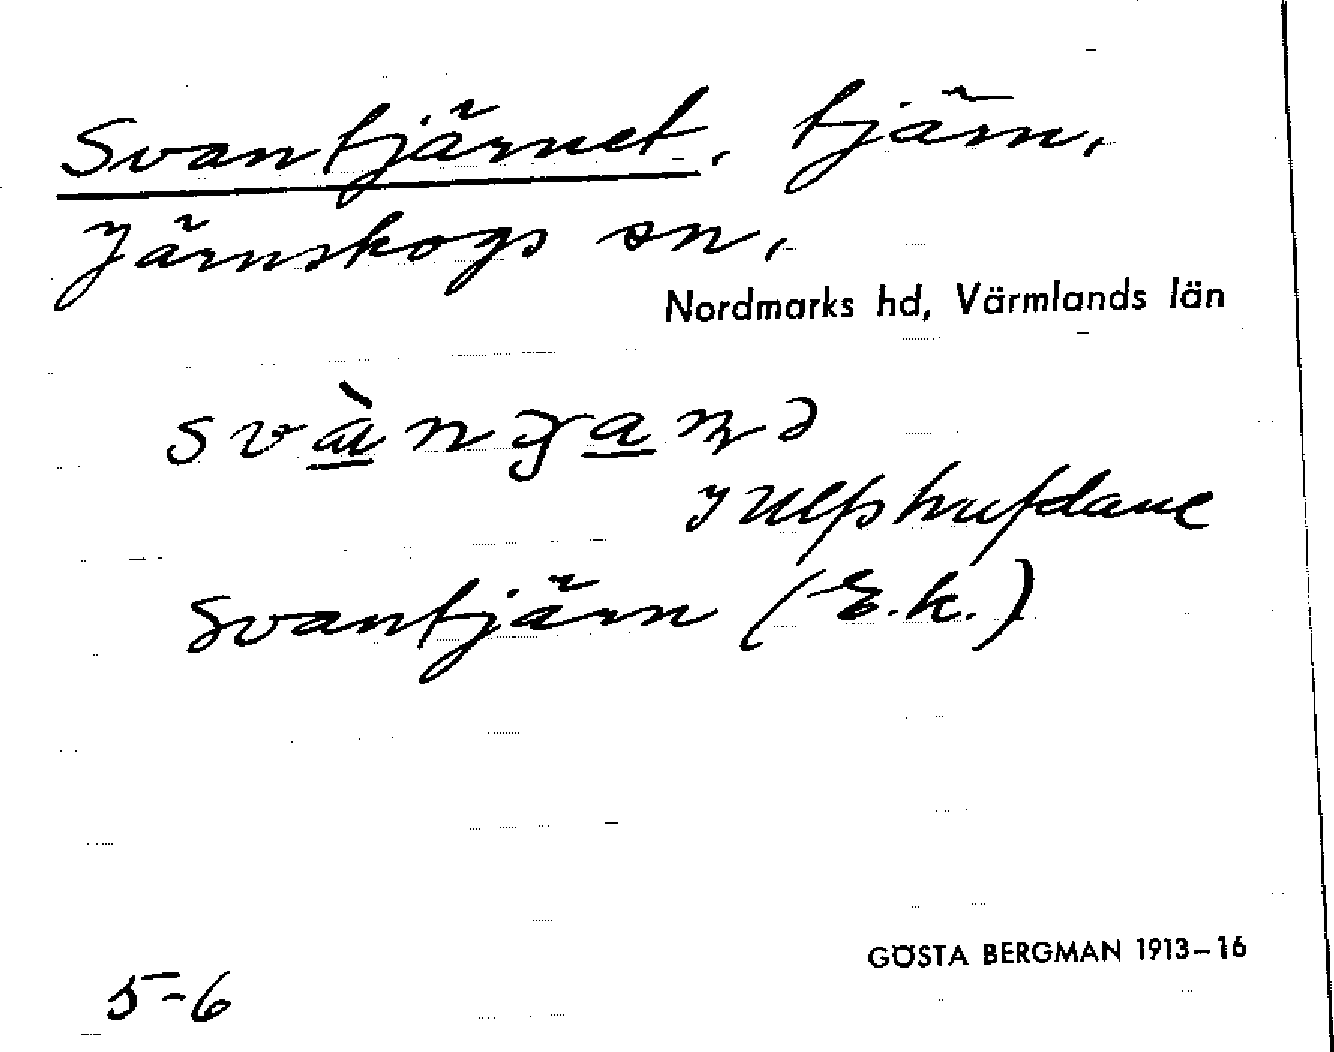 Svantjärnet, tjärn,
Järnskogs sn,
Nordmarks hd, Värmlands län
Svantjärn (E.k.)
GÖSTA BERGMAN 1913–16
5-6